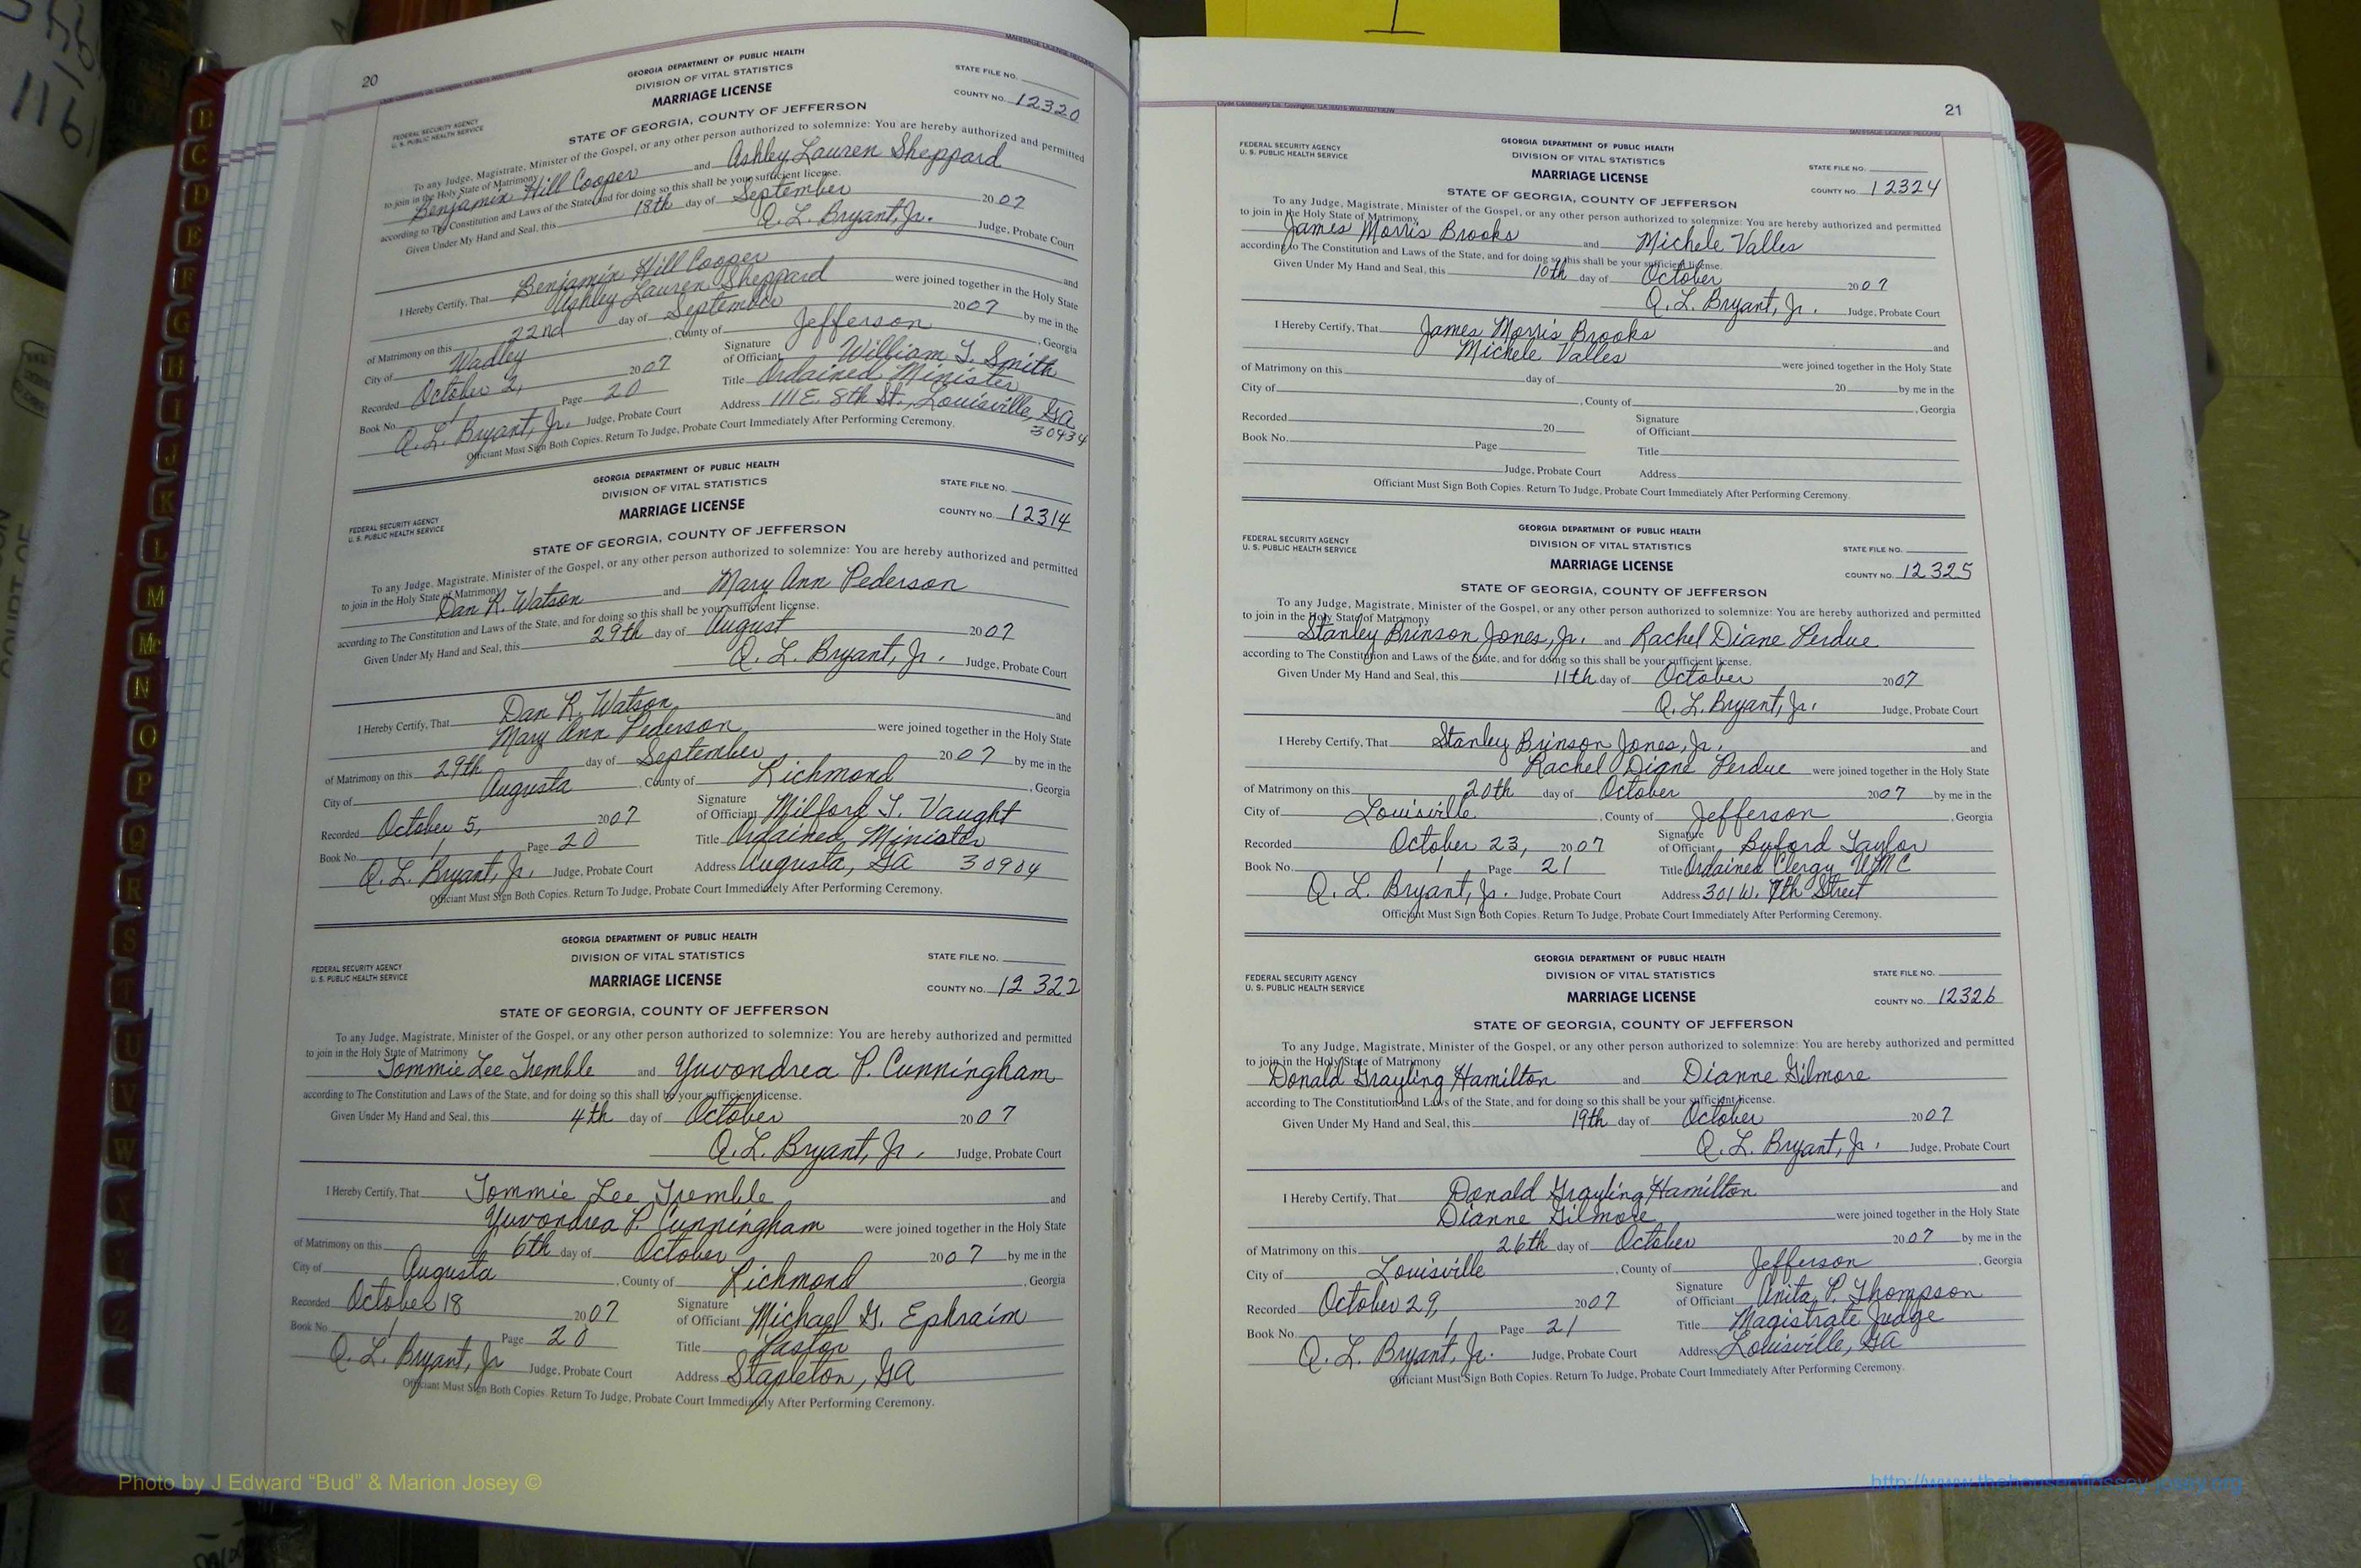 20
GEORGIA DEPARTMENT OF PUBLIC HEALTH
DIVISION OF VITAL STATISTICS
MARRIAGE LICENSE
STATE FILE NO.
COUNTY NO. 12320
FEDERAL SECURITY AGENCY
U. S. PUBLIC HEALTH SERVICE
STATE OF GEORGIA, COUNTY OF JEFFERSON
To any Judge, Magistrate, Minister of the Gospel, or any other person authorized to solemnize: You are hereby authorized and permitted
to join in the Holy State of Matrimony
Benjamin Hill Cooper and Ashley Lauren Sheppard
according to The Constitution and Laws of the State, and for doing so this shall be your sufficient license.
Given Under My Hand and Seal, this 18th day of September 2007
Q. L. Bryant, Jr. Judge, Probate Court
I Hereby Certify, That Benjamin Hill Cooper and
Ashley Lauren Sheppard were joined together in the Holy State
of Matrimony on this 22nd day of September 2007 by me in the
City of Wadley, County of Jefferson, Georgia
Recorded October 2, 2007 Signature of Officiant William T. Smith
Book No. 1 Page 20 Title Ordained Minister
Q. L. Bryant, Jr. Judge, Probate Court Address 111 E. 8th St., Louisville, GA 30434
Officiant Must Sign Both Copies. Return To Judge, Probate Court Immediately After Performing Ceremony.
GEORGIA DEPARTMENT OF PUBLIC HEALTH
DIVISION OF VITAL STATISTICS
MARRIAGE LICENSE
STATE FILE NO.
COUNTY NO. 12314
FEDERAL SECURITY AGENCY
U. S. PUBLIC HEALTH SERVICE
STATE OF GEORGIA, COUNTY OF JEFFERSON
To any Judge, Magistrate, Minister of the Gospel, or any other person authorized to solemnize: You are hereby authorized and permitted
to join in the Holy State of Matrimony
Dan R. Watson and Mary Ann Pederson
according to The Constitution and Laws of the State, and for doing so this shall be your sufficient license.
Given Under My Hand and Seal, this 29th day of August 2007
Q. L. Bryant, Jr. Judge, Probate Court
I Hereby Certify, That Dan R. Watson and
Mary Ann Pederson were joined together in the Holy State
of Matrimony on this 29th day of September 2007 by me in the
City of Augusta, County of Richmond, Georgia
Recorded October 5, 2007 Signature of Officiant Milford T. Vaught
Book No. 1 Page 20 Title Ordained Minister
Q. L. Bryant, Jr. Judge, Probate Court Address Augusta, GA 30904
Officiant Must Sign Both Copies. Return To Judge, Probate Court Immediately After Performing Ceremony.
GEORGIA DEPARTMENT OF PUBLIC HEALTH
DIVISION OF VITAL STATISTICS
MARRIAGE LICENSE
STATE FILE NO.
COUNTY NO. 12322
FEDERAL SECURITY AGENCY
U. S. PUBLIC HEALTH SERVICE
STATE OF GEORGIA, COUNTY OF JEFFERSON
To any Judge, Magistrate, Minister of the Gospel, or any other person authorized to solemnize: You are hereby authorized and permitted
to join in the Holy State of Matrimony
Tommie Lee Tremble and Yuvondrea P. Cunningham
according to The Constitution and Laws of the State, and for doing so this shall be your sufficient license.
Given Under My Hand and Seal, this 4th day of October 2007
Q. L. Bryant, Jr. Judge, Probate Court
I Hereby Certify, That Tommie Lee Tremble and
Yuvondrea P. Cunningham were joined together in the Holy State
of Matrimony on this 6th day of October 2007 by me in the
City of Augusta, County of Richmond, Georgia
Recorded October 18 2007 Signature of Officiant Michael G. Ephraim
Book No. 1 Page 20 Title Pastor
Q. L. Bryant, Jr Judge, Probate Court Address Stapleton, GA
Officiant Must Sign Both Copies. Return To Judge, Probate Court Immediately After Performing Ceremony.
21
MARRIAGE LICENSE RECORD
GEORGIA DEPARTMENT OF PUBLIC HEALTH
DIVISION OF VITAL STATISTICS
MARRIAGE LICENSE
STATE FILE NO.
COUNTY NO. 12324
FEDERAL SECURITY AGENCY
U. S. PUBLIC HEALTH SERVICE
STATE OF GEORGIA, COUNTY OF JEFFERSON
To any Judge, Magistrate, Minister of the Gospel, or any other person authorized to solemnize: You are hereby authorized and permitted
to join in the Holy State of Matrimony
James Morris Brooks and Michele Valles
according to The Constitution and Laws of the State, and for doing so this shall be your sufficient license.
Given Under My Hand and Seal, this 10th day of October 2007
Q. L. Bryant, Jr. Judge, Probate Court
I Hereby Certify, That James Morris Brooks and
Michele Valles were joined together in the Holy State
of Matrimony on this day of 20 by me in the
City of , County of , Georgia
Recorded 20 Signature of Officiant
Book No. Page Title
Judge, Probate Court Address
Officiant Must Sign Both Copies. Return To Judge, Probate Court Immediately After Performing Ceremony.
GEORGIA DEPARTMENT OF PUBLIC HEALTH
DIVISION OF VITAL STATISTICS
MARRIAGE LICENSE
STATE FILE NO.
COUNTY NO. 12325
FEDERAL SECURITY AGENCY
U. S. PUBLIC HEALTH SERVICE
STATE OF GEORGIA, COUNTY OF JEFFERSON
To any Judge, Magistrate, Minister of the Gospel, or any other person authorized to solemnize: You are hereby authorized and permitted
to join in the Holy State of Matrimony
Stanley Brinson Jones, Jr. and Rachel Diane Perdue
according to The Constitution and Laws of the State, and for doing so this shall be your sufficient license.
Given Under My Hand and Seal, this 11th day of October 2007
Q. L. Bryant, Jr. Judge, Probate Court
I Hereby Certify, That Stanley Brinson Jones, Jr. and
Rachel Diane Perdue were joined together in the Holy State
of Matrimony on this 20th day of October 2007 by me in the
City of Louisville, County of Jefferson, Georgia
Recorded October 23, 2007 Signature of Officiant Byford Taylor
Book No. 1 Page 21 Title Ordained Clergy UMC
Q. L. Bryant, Jr. Judge, Probate Court Address 301 W. 7th Street
Officiant Must Sign Both Copies. Return To Judge, Probate Court Immediately After Performing Ceremony.
GEORGIA DEPARTMENT OF PUBLIC HEALTH
DIVISION OF VITAL STATISTICS
MARRIAGE LICENSE
STATE FILE NO.
COUNTY NO. 12326
FEDERAL SECURITY AGENCY
U. S. PUBLIC HEALTH SERVICE
STATE OF GEORGIA, COUNTY OF JEFFERSON
To any Judge, Magistrate, Minister of the Gospel, or any other person authorized to solemnize: You are hereby authorized and permitted
to join in the Holy State of Matrimony
Donald Grayling Hamilton and Dianne Gilmore
according to The Constitution and Laws of the State, and for doing so this shall be your sufficient license.
Given Under My Hand and Seal, this 19th day of October 2007
Q. L. Bryant, Jr. Judge, Probate Court
I Hereby Certify, That Donald Grayling Hamilton and
Dianne Gilmore were joined together in the Holy State
of Matrimony on this 26th day of October 2007 by me in the
City of Louisville, County of Jefferson, Georgia
Recorded October 29, 2007 Signature of Officiant Anita P. Thompson
Book No. 1 Page 21 Title Magistrate Judge
Q. L. Bryant, Jr. Judge, Probate Court Address Louisville, GA
Officiant Must Sign Both Copies. Return To Judge, Probate Court Immediately After Performing Ceremony.
B
C
D
E
F
G
H
I
J
K
L
M
Mc
N
O
P
Q
R
S
T
U
V
W
Z
1
116
Photo by J Edward “Bud” & Marion Josey ©